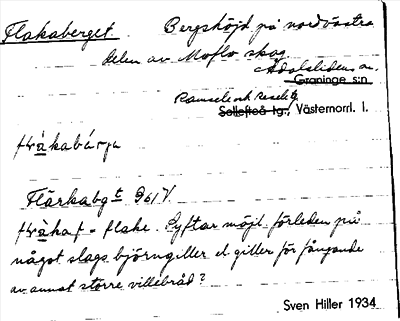 Flakaberget Bergshöjd på nordvästra
delen av Moflo skog
Ådalslidens sn.
Graninge s:n
Ramsele och Resele tg.
Sollefteå tg., Västernorrl. l.
Flärkabgt 961 V.
flåka f = flake. Syftar möjl. förleden på
något slags björngiller el. giller för fångande
av annat större villebråd?
Sven Hiller 1934